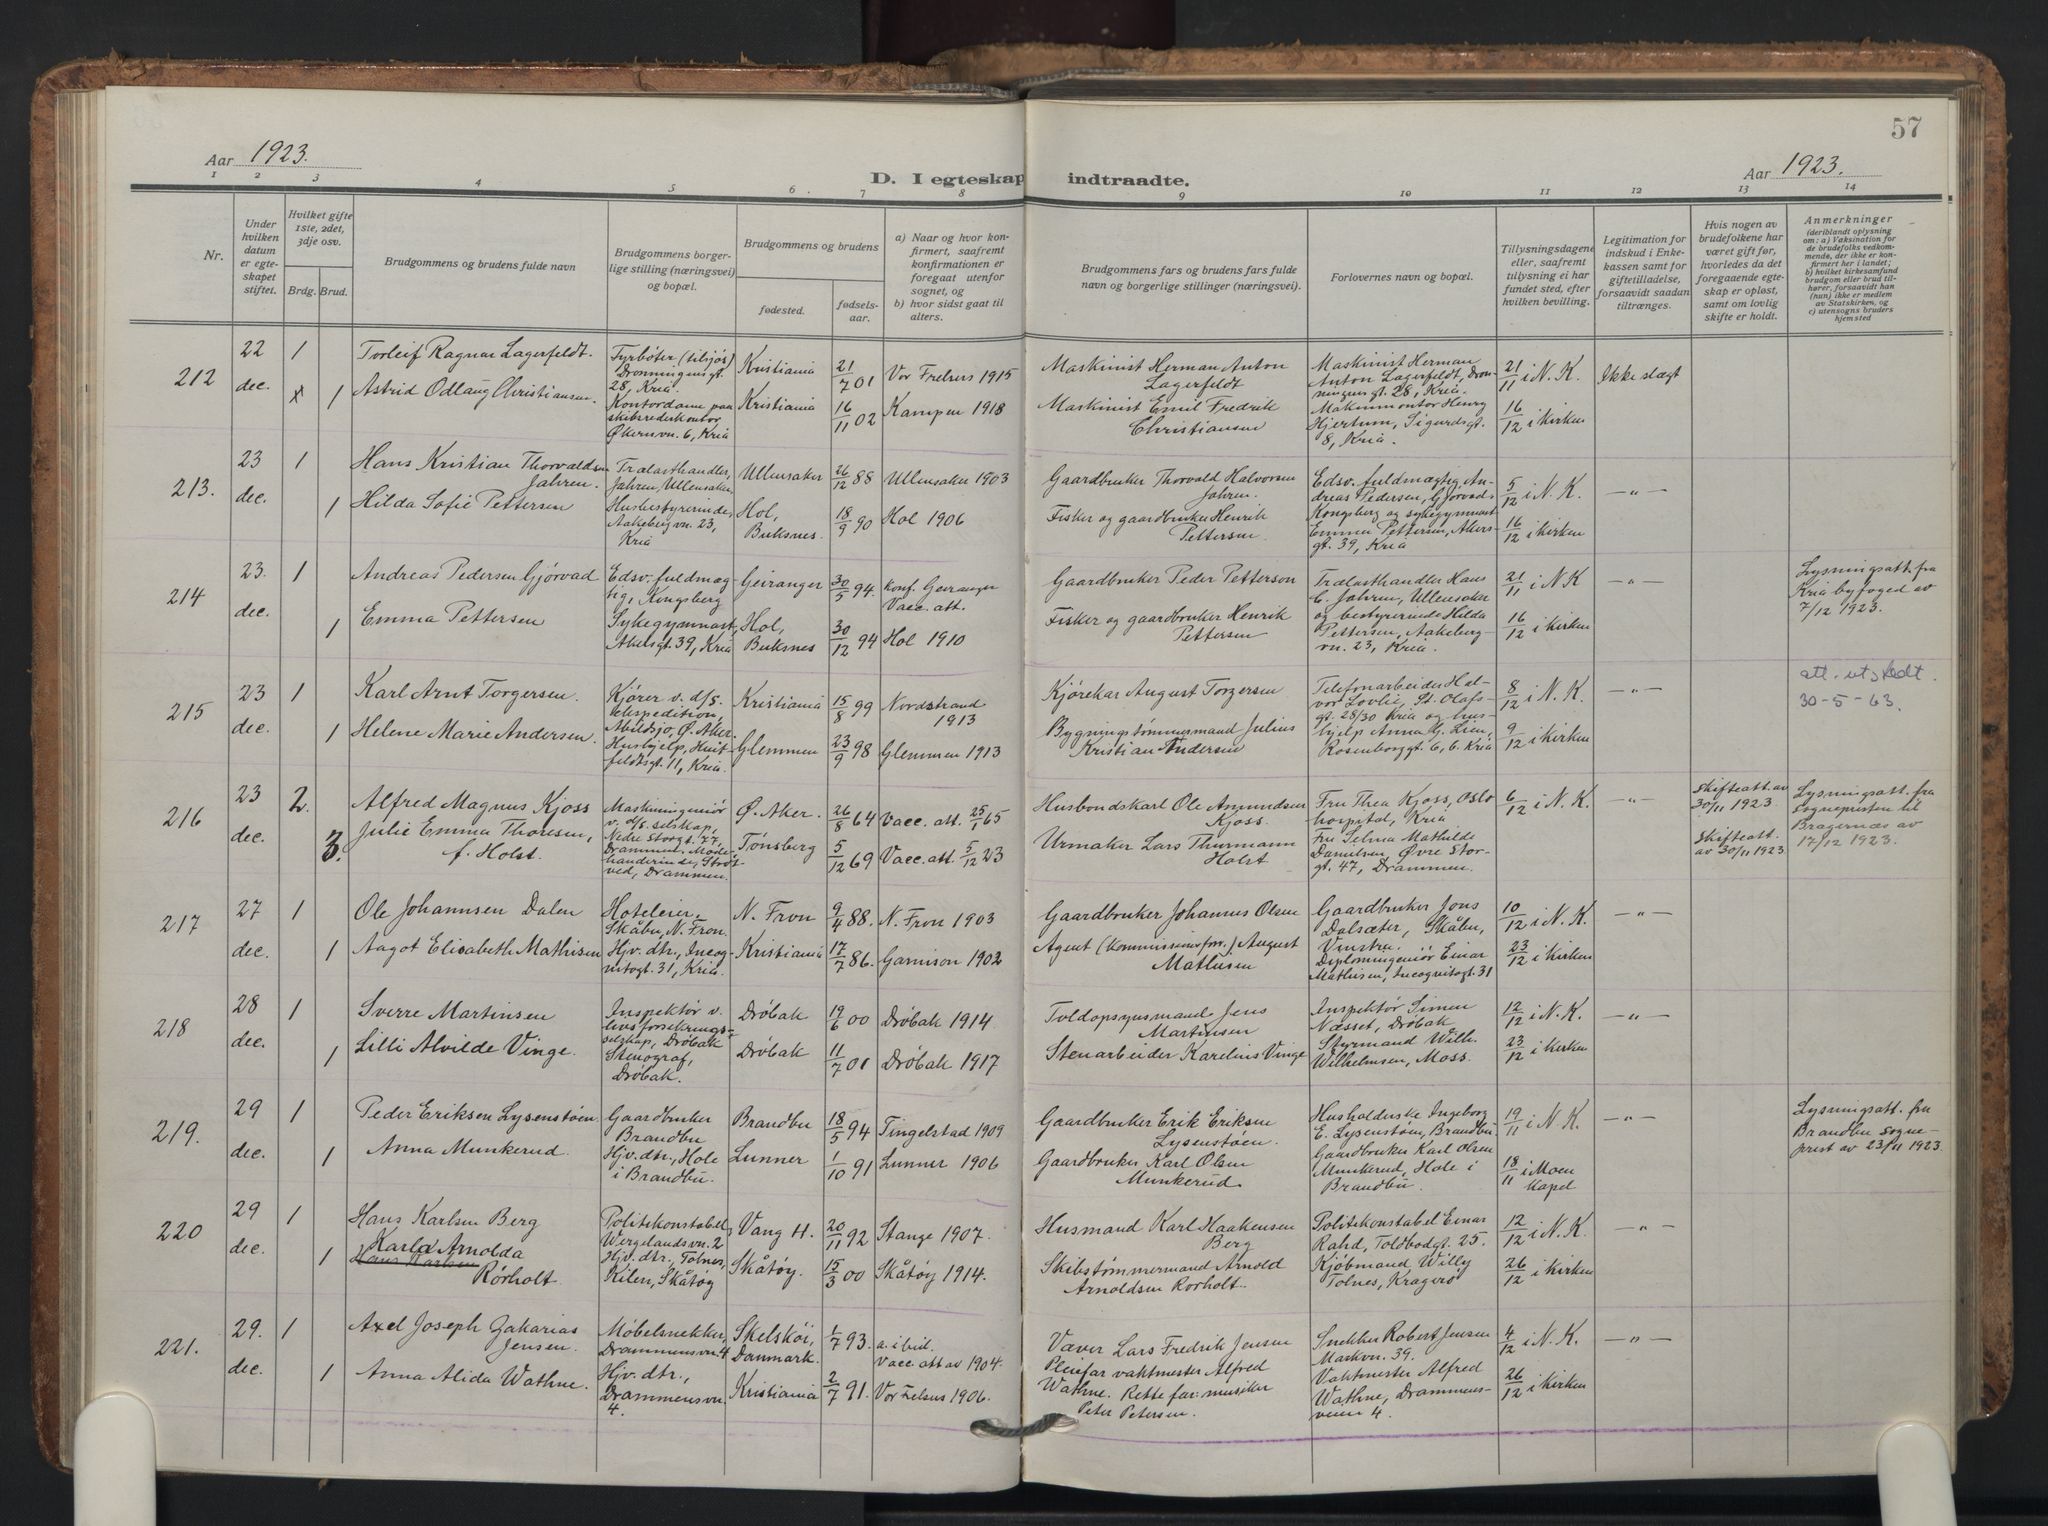 57
Aar 1923.
D. I egteskap indtraadte.
Aar 1923.
1 2 3 4 5 6. 7 8 9 10 11 12 13 14
Nr.
Under hvilken datum er egteskapet stiftet.
Hvilket gifte 1ste, 2det, 3dje osv.
Brdg. Brud.
Brudgommens og brudens fulde navn
Brudgommens borgerlige stilling (næringsvei) og bopæl.
Brudgommens og brudens
fødested.
fødselsaar.
a) Naar og hvor konfirmert, saafremt konfirmationen er foregaat utenfor sognet, og
b) hvor sidst gaat til alters.
Brudgommens fars og brudens fars fulde navn og borgerlige stillinger (næringsvei).
Forlovernes navn og bopæl.
Tillysningsdagene eller, saafremt tillysning ei har fundet sted, efter hvilken bevilling.
Legitimation for indskud i Enkekassen samt for giftetilladelse, forsaavidt saadan tiltrænges.
Hvis nogen av brudefolkene har været gift før, hvorledes da det foregaaende egteskap er opløst, samt om lovlig skifte er holdt.
Anmerkninger (deriblandt oplysning om: a) Vaksination for de brudefolks vedkommende, der ikke er konfirmert her i landet; b) hvilket kirkesamfund brudgom eller brud tilhører, forsaavidt han (hun) ikke er medlem av Statskirken, og c) utensogns bruders hjemsted
212
22 dec.
1
x 1
Torleif Ragnar Lagerfeldt.
Astrid Odlaug Christiansen.
Fyrbøter (tilsjøs)
Dronningensgt.
28, Kria.
Kontordame paa
skibsrederkontor
Økernvn. 6, Kria
Kristiania 21/7 01 Vor Frelsers 1915
Kristiania 16/11 02 Kampen 1918
Maskinist Herman Anton
Lagerfeldt
Maskinist Emil Fredrik
Christiansen
Maskinist Herman
Anton Lagerfeldt, Dron-
ningensgt. 28, Kria.
Maskinmontør Henry
Hjertum, Sigurdsgt.
8, Kria.
21/11 i N. K.
16/12 i kirken
Ikke slægt
213.
23 dec.
1
1
Hans Kristian Thorvaldsen
Jahren.
Hilda Sofie Pettersen
Trælasthandler,
Jahren, Ullensaker.
Husbestyrerinde,
Aakebergvn. 23,
Kria
Ullensaker 26/12 88 Ullensaker 1903
Hol,
Buksnes. 18/9 90 Hol 1906
Gaardbruker Thorvald Halvorsen
Jahren.
Fisker og gaardbruker Henrik
Pettersen.
Edsv. fuldmægtig An-
dreas Pedersen, Gjørvad,
Kongsberg og sykegymnast
Emma Pettersen, Akers-
gt. 39, Kria
5/12 i N. K.
16/12 i kirken
— „ —
214
23. dec.
1
1
Andreas Pedersen Gjørvad
Emma Pettersen
Edsv. fuldmæg-
tig, Kongsberg
Sykegymnast,
Akersgt. 39, Kria
Geiranger 30/5 94. Konf. Geiranger
Vacc. att.
Hol,
Buksnes 30/12 94 Hol 1910
Gaardbruker Peder Petterson
Fisker og gaardbruker Henrik
Pettersen
Trælasthandler Hans
C. Jahren, Ullensaker
og bestyrerinde Hilda
Pettersen, Aakeberg-
vn. 23, Kria.
21/11 i N. K
16/12 i kirken
— „ —
Lysningsatt. fra
Kria byfoged av
7/12 1923.
215
23 dec.
1
1
Karl Arnt Torgersen.
Helene Marie Andersen.
Kjører v. d/s.
ekspedition,
Abildsjø, Ø. Aker.
Hushjelp, Huit-
feldtsgt. 11, Kria.
Kristiania 15/8 99 Nordstrand
1913
Glemmen 23/9 98 Glemmen 1913
Kjørekar August Torgersen
Bygningstømmermand Julius
Kristian Andersen
Telefonarbeider Hal-
vor Lovlie, St. Olafs-
gt. 28/30 Kria og hus-
hjelp Anna G. Lien,
Rosenborggt. 6, Kria
8/12 i N. K.
9/12 i kirken
— „ —
att. utstedt.
30-5-63.
216
23 dec.
2.
3.
Alfred Magnus Kjoss
Julie Emma Thoresen,
f. Holst.
Maskiningeniør
v. d/s. selskap,
Nedre Storgt. 77,
Drammen. Mode-
handlerinde, Strøt-
ved, Drammen.
Ø. Aker. 26/8 64 Vacc. att. 25/1 65
Tønsberg 5/12 69 Vacc. att. 5/12 23
Husbondskarl Ole Amundsen
Kjoss.
Urmaker Lars Thurmann
Holst
Fru Thea Kjoss, Oslo
hospital, Kria
Fru Selma Mathilde
Danielsen, Øvre Stor-
gt. 47, Drammen.
6/12 i N. K.
— „ —
Skifteatt. av
30/11 1923.
Skifteatt.
av 30/11 1923
Lysningsatt. fra
sognepresten til
Bragernæs av
17/12 1923.
217
27 dec.
1
1
Ole Johannsen Dalen
Aagot Elisabeth Mathisen
Hoteleier,
Skåbu, N. Fron.
Hjv. dtr., Incog-
nitogt. 31, Kria.
N. Fron 9/4 88. N. Fron 1903
Kristiania 17/7 86. Garnison 1902
Gaardbruker Johannes Olsen
Agent (Kommissionsforr.) August
Mathisen
Gaardbruker Jons
Dalsæter, Skåbu,
Vinstra.
Diplomingeniør Einar
Mathisen, Incognitogt. 31
10/12 i N. K.
23/12 i kirken
— „ —
218
28 dec.
1
1
Sverre Martinsen
Lilli Alvilde Vinge.
Inspektør v.
livsforsikrings-
selskap, Drøbak
Stenograf,
Drøbak.
Drøbak 19/6 00 Drøbak 1914
Drøbak 11/7 01 Drøbak 1917
Toldopsynsmand Jens
Martinsen
Stenarbeider Karelius Vinge
Inspektør Simen
Næsset, Drøbak
Styrmand Wilh.
Wilhelmsen, Moss.
12/12 i N. K.
23/12 i kirken
— „ —
219.
29 dec.
1
1
Peder Eriksen Lysenstøen
Anna Munkerud.
Gaardbruker
Brandbu
Hjv. dtr., Hole
i Brandbu.
Brandbu 18/5 94 Tingelstad 1909
Lunner 1/10 91 Lunner 1906
Gaardbruker Erik Eriksen
Lysenstøen.
Gaardbruker Karl Olsen
Munkerud
Husholderske Ingeborg
E. Lysenstøen, Brandbu.
Gaardbruker Karl Olsen
Munkerud, Hole i
Brandbu.
19/11 i N. K.
18/11 i Moen
kapel
— „ —
Lysningsatt. fra
Brandbu sogne-
prest av 23/11 1923.
220
29 dec.
1
1
Hans Karlsen Berg
Karla Arnolda
Hans Karlsen
Rörholt.
Politikonstabel,
Wergelandsvn. 2
Hjv. dtr., Tobnes,
Kilen, Skåtøy
Vang H. 20/11 92 Stange 1907.
Skåtøy. 15/3 00 Skåtøy 1914.
Husmand Karl Haakensen
Berg
Skibstømmermand Arnold
Arnoldsen Rorholt.
Politikonstabel Einar
Rahd, Toldbodgt. 25.
Kjøbmand Willy
Tolnes, Kragerø
12/12 i N. K.
26/12 i kirken
— „ —
221.
29. dec.
1
1
Axel Joseph Zakarias
Jensen.
Anna Alida Wathne.
Møbelsnekker,
Drammensvn. 4
Hjv. dtr.,
Drammensvn.
4.
Skelskör,
Danmark. 1/7 93. a. ibid.
Vacc. att av 1904.
Kristiania 2/7 91. Vor Frelsers 1906.
Væver Lars Fredrik Jensen
Pleiefar vaktmester Alfred
Wathne. Rette far: musiker
Peter Petersen.
Snekker Robert Jensen
Markvn. 39.
Vaktmester Alfred
Wathne, Drammens-
veien 4.
4/12 i N. K.
26/12 i kirken
— „ —